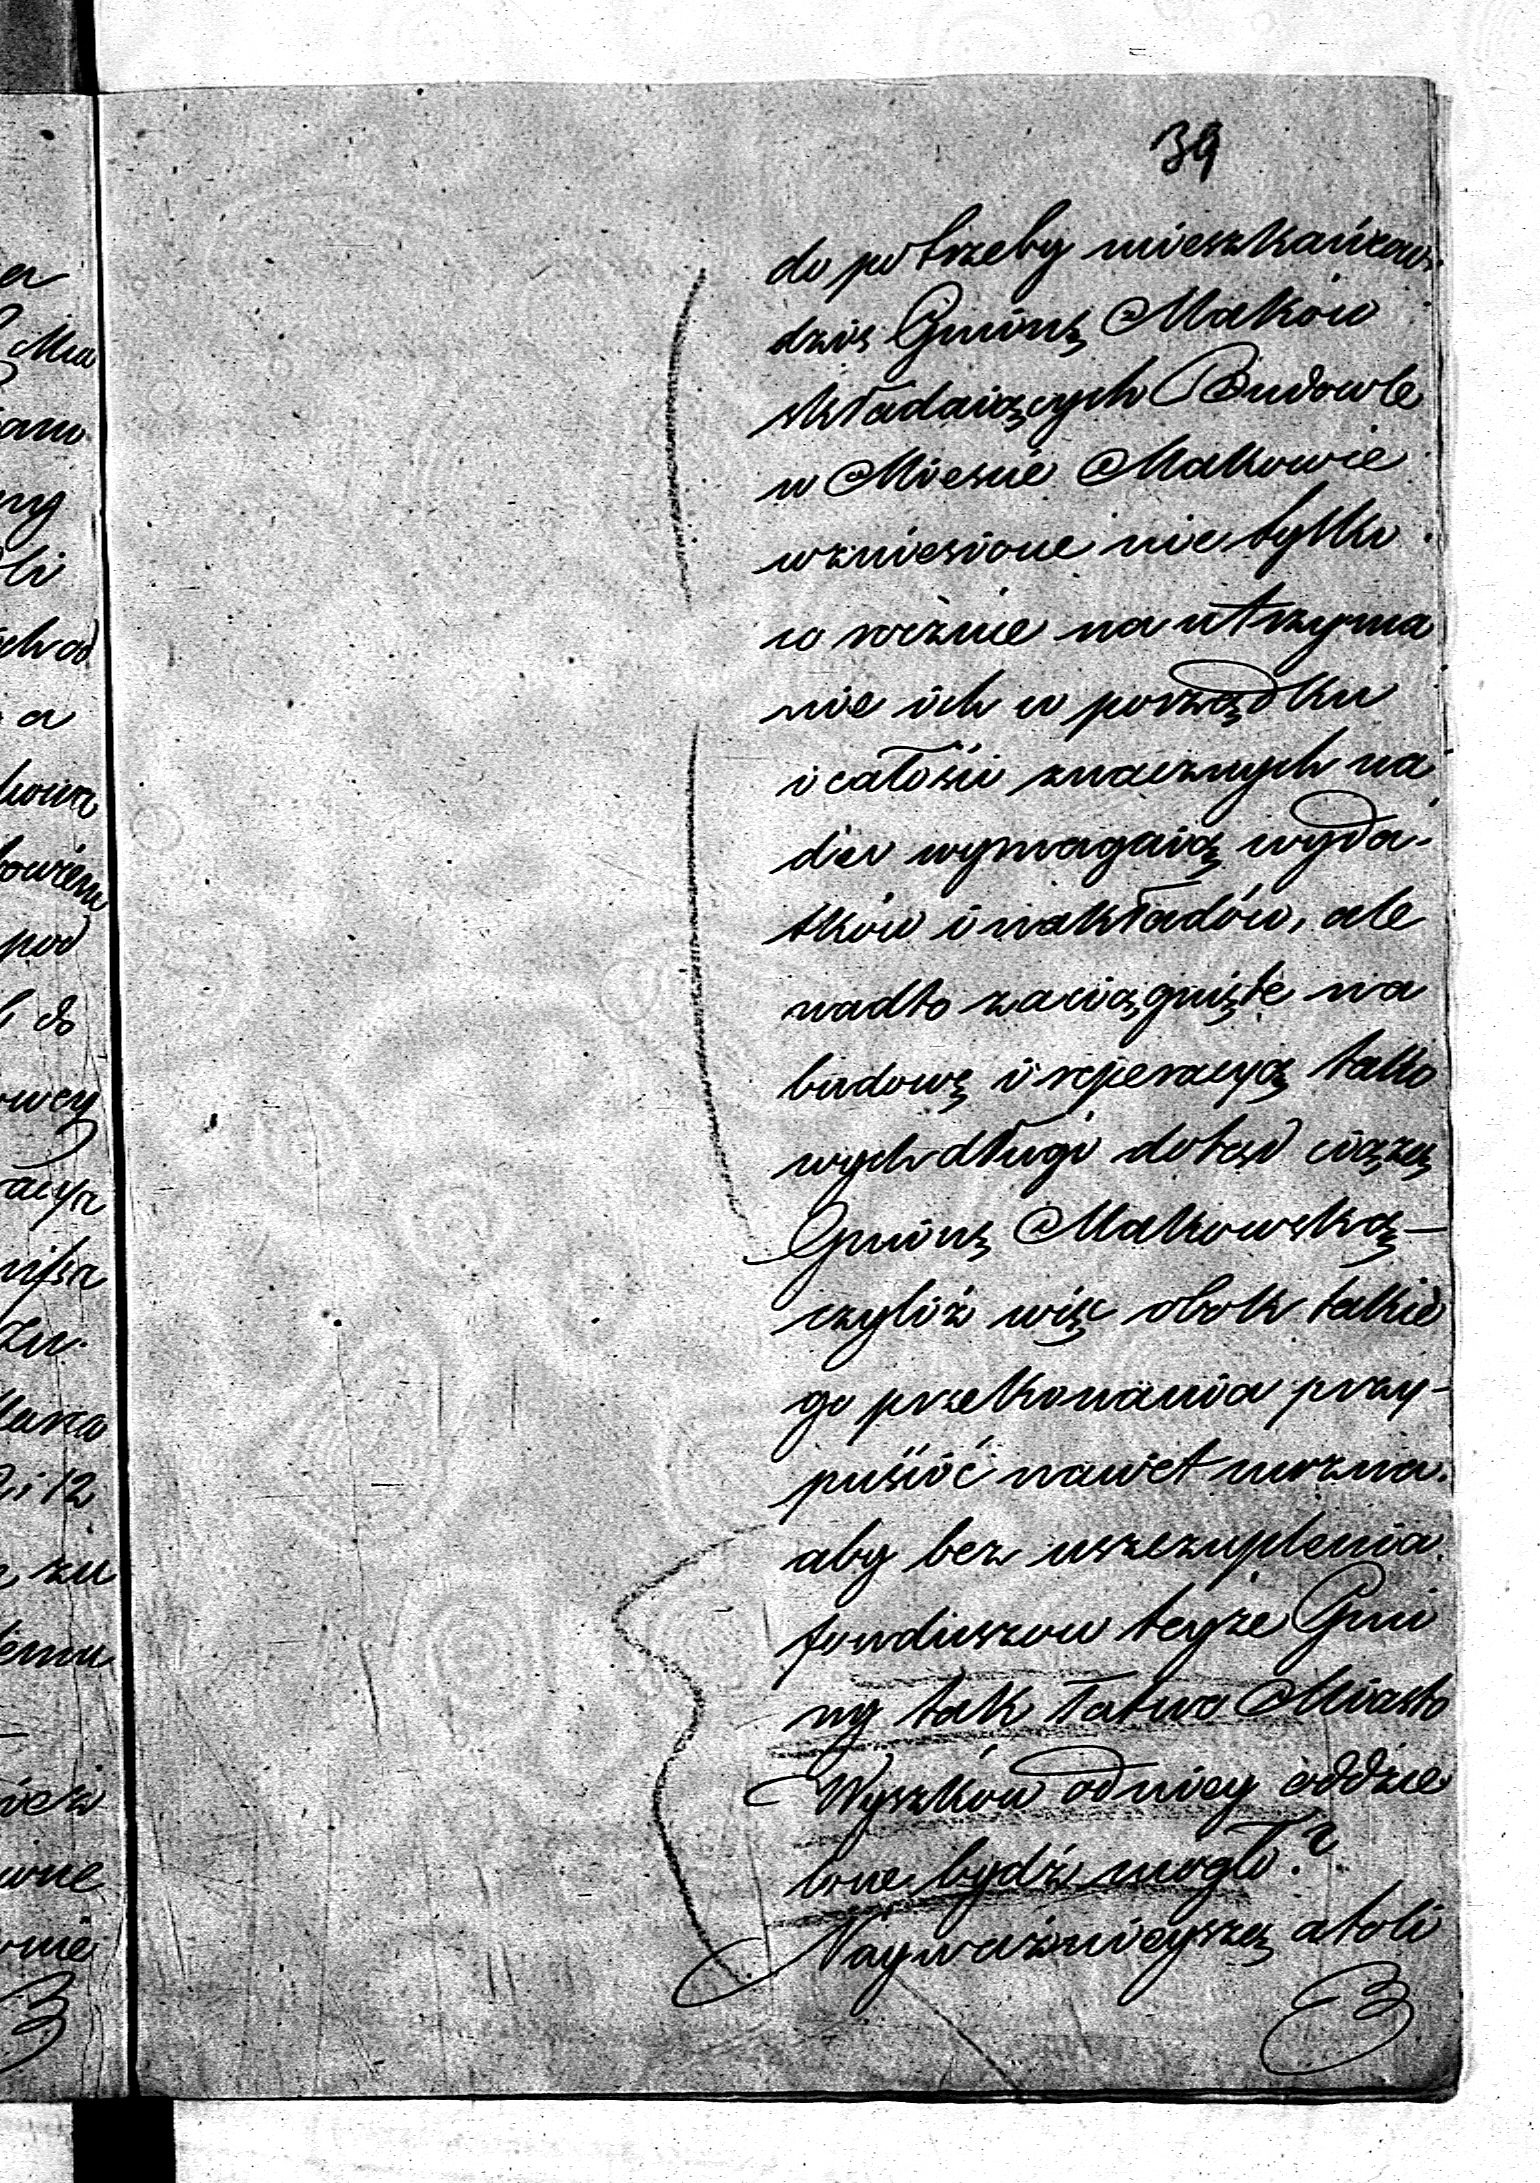 39
do potrzeby mieszkańcow
dziś Gminę Maków
składaiących Budowle
w Mieście Makowie
wzniesione nie tylko
co rocznie na utrzyma
nie ich w porządku
i całości znacznych na
der wymagaią wyda-
tków i nakładów, ale
nadto zaciągnięte na
budowę i reperacyą tako
wych długi dotąd ciążą
Gminę Makowską —
czyliż więc obok takie
go przekonania przy-
puścić nawet można
aby bez uszczuplenia
funduszow teyże Gmi
ny tak łatwo Miasto
Wyszków od niey oddzie
lone bydź mogło?
Nayważnieyszą atoli
a
Mia
ny
li
a
pod
do
i 12
zu